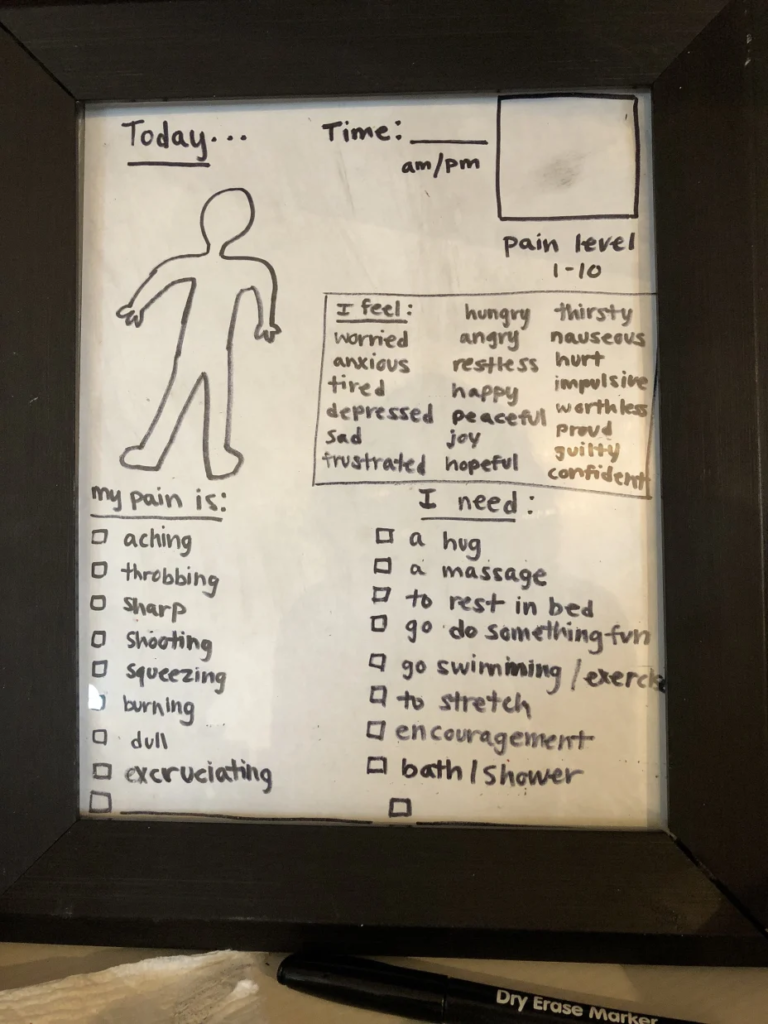 Today...
Time: ____
am/pm
pain level
1-10
I feel: hungry thirsty
worried angry nauseous
anxious restless hurt
tired happy impulsive
depressed peaceful worthless
sad joy proud
frustrated hopeful guilty
confident
my pain is:
aching
throbbing
sharp
shooting
squeezing
burning
dull
excruciating
I need:
a hug
a massage
to rest in bed
go do something fun
go swimming / exercise
to stretch
encouragement
bath / shower
Dry Erase Marker